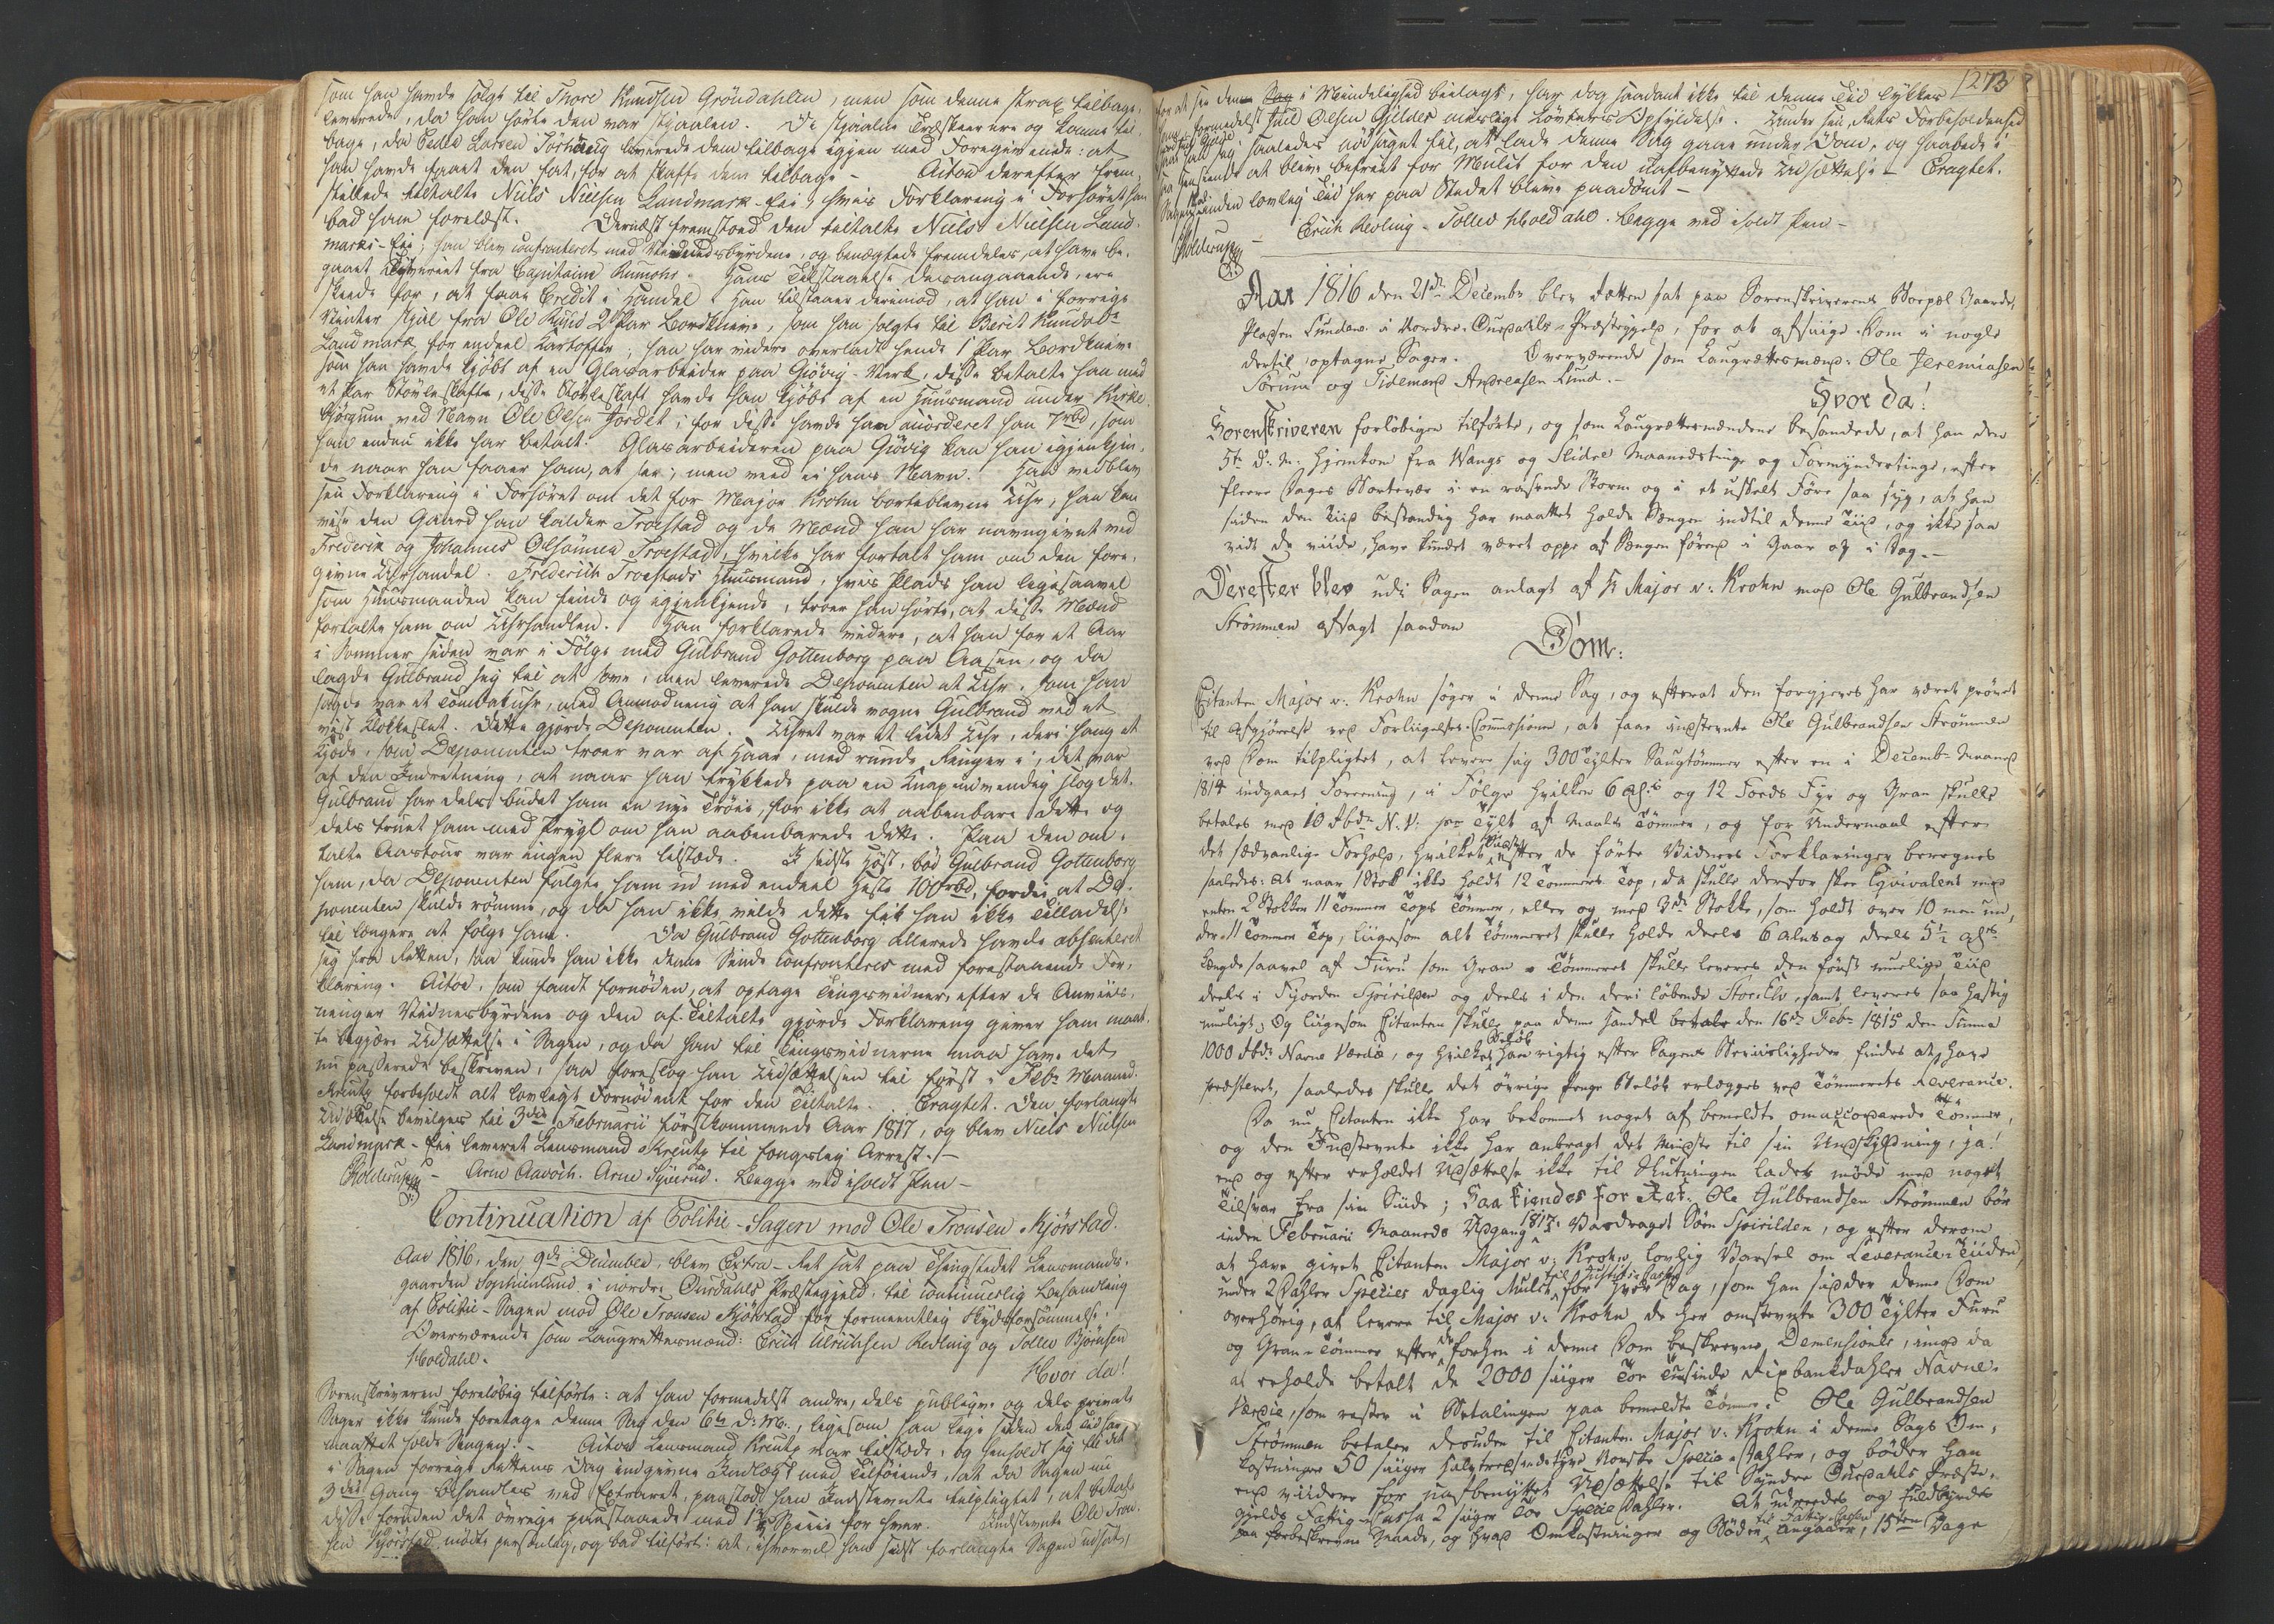 som han havde solgt til Thore Knudsen Gröndahlen, men som denne strax tilbage,
leverede, da han hørte den var stjaalen. De stjaalne Træskeer ere og komne til,
bage, da Peder Larsen leverede dem tilbage igjen med Foregivende: at
han havde faaet dem fat, for at skaffe dem tilbage – Actor derefter frem,
stillede tiltalte Niels Nielsen Landmark-Eie, hvis Forklaring i Forhøret han
bad ham forelæst. Dernæst fremstoed den tiltalte Niels Nielsen Land,
marks-Eie; han blev confronteret med Vidnesbyrdene, og benægtede fremdeles, at have be,
gaaet Tyveriet fra Capitaine Rumohr. Hans Tilstaaelse desangaaende, ere
skeede for, at faae Credit i Handel. Han tilstaaer derimod, at han i forrige
Vinter stjal fra Ole 2 Par Bordknive, som han solgte til Berit Knudsdr
Landmark for endeel Kartofler; han har videre overladt hende 1 Par Bordknive
som han havde kjöbt af en Glasarbeider paa Gjövig-Verk, disse betalte han med
et Par Stövleskafter, disse Stövleskaft havde han kjöbt af en Huusmand under Kirke,
ved Navn Ole Olsen Jordet; for disse havde han accorderet han 7 rbd, som
han endnu ikke har betalt. Glasarbeideren paa Gjövig kan han igjenkjen,
de naar han faaer ham, at see; men veed ei hans Navn. Han vedblev
sin Forklaring i Forhøret om det for Major Krohn borteblevne Uhr, han kan
vise den Gaard han kalder Troestad og de Mænd han har navngivet ved
Frederik og Johannes Olsönner Troestad, hvilke har fortalt ham om den fore,
givne Uhrhandel. Frederich Troestads Huusmand, hvis Plads han ligesaavel
som Huusmanden kan finde og igjenkjende, troer han hörte, at disse Mænd
fortalte ham om Uhrhandlen. Han forklarede videre, at han for et Aar
i Sommer siden var i Fölge med Gulbrand Gottenborg paa Aasen, og da
lagde Gulbrand sig til at sove, men leverede Deponenten et Uhr, som han
sagde var et Tombakuhr, med Anmodning at han skulde vogne Gulbrand ved et
vist Klokkeslet. Dette gjorde Deponenten. Uhret var et lidet Uhr, deri hang et
Kjöde, som Deponenten troer var af Haar, med runde Ringer i, det var
af den Indretning, at naar han trykkede paa en Knap indvendig slog det.
Gulbrand har dels budet ham en nye Tröie, for ikke at aabenbare dette og
dels truet ham med Prygl om han aabenbarede dette. Paa den om,
talte Aastour var ingen flere tilstæde. I sidste Höst, böd Gulbrand Gottenborg
ham, da Deponenten fulgte ham ud med endeel Heste 100 rbd, fordi at De,
ponenten skulde römme, og da han ikke vilde dette fik han ikke Tilladelse
til længere at fölge ham. Da Gulbrand Gottenborg allerede havde absenteret
sig fra Retten, saa kunde han ikke denne Sinde confronteres med forestaaende For,
klaring. Actor, som fandt fornöden, at optage Tingsvidner, efter de Anviis,
ninger Vidnesbyrdene og den af Tiltalte gjorde Forklaring giver ham maat,
te begjære Udsættelse i Sagen, og da han til Tingsvidnerne maa have det
nu passerede beskreven, saa foreslog han Udsættelsen til först i Febr Maaned.
Kreutz forbeholdt alt lovligt Fornödent for den Tiltalte. Eragtet. Den forlangte
Udsættelse bevilges til 3die Februarii förstkommende Aar 1817, og blev Niels Nielsen
Landmark-Eie leveret Lensmand Kreutz til fængslig Arrest.–
– Arne Aavöch. Arne Sÿverud. Begge med iholdt Pen –
Continuation af Politie-Sagen mod Ole Tronsen Kjörstad.
Aar 1816, den 9de December, blev Extra-Ret sat paa Thingstedet Lensmands,
gaarden Sophienlund i nordre Ourdahls Præstegjeld, til continuerlig Behandling
af Politie-Sagen mod Ole Tronsen Kjörstad for formeentlig Skydsforsömmelse.
Overværende som Laugrettesmænd: Erich Ulrichsen Reding og Tollev Björnsen
Hvoldahl.
Hvor da!
Sorenskriveren foreløbig tilförte: at han formedelst andre, dels publiqve og dels private
Sager ikke kunde foretage denne Sag den 6te d: M:, ligesom han lige siden den Tid har
maattet holde Sengen. – Actor Lensmand Kreutz var tilstæde, og henholdt sig til det
i Sagen forrige Rettens Dag indgivne Indlæg med Tilföiende, at da Sagen nu
3die Gang behandles ved Extraret, paastod han Indstevnte tilpligtet, at betale
disse foruden det övrige paastaaede med 1 1/2 Specie for hver. Indstevnte Ole Tron,
sen Kjörstad mödte personlig, og bad tilfört: at, ihvorvel han sidst forlangte Sagen udsat,
273
for at see denne Sag i Mindelighed bielagt, har dog saadant ikke til denne Tid lykkes
ham formedelst Juul Olsen Gjildes Löfters Opfyldelse. Under sin Rets Forbeholdenhed
saa han sig saaledes nödsaget til, at lade denne Sag gaae under Dom, og haabede i
saa Henseende at blive befriet for Mulct for den uafbenyttede Udsættelse – Eragtet.
Sagen skal i anden lovlig Tid her paa Stedet blive paadömt –
Erich Reding. Tollev Hvoldahl. Begge med iholdt Pen –
Aar 1816 den 21de Decembr blev Retten sat paa Sorenskriverens Boepæl Gaarde,
Pladsen Lunden i Nordre-Ourdahls-Præstegjeld, for at afsiige Dom i nogle
dertil optagne Sager. Overværende som Laugrettesmænd: Ole Jeremiasen
Sörum og Tidemand Andreasen Lund.–
Hvor da!
Sorenskriveren forløbigen tilförte, og som Laugrettesmændene besandede, at han den
5te d: M: hjemkom fra Wangs og Slidre Maanedstinge og Formynderting, efter
fleere Dages Bortevær i en rasende Storm og i et uskelt Före saa syg, at han
siden den Tiid bestandig har maattet holde Sengen indtil denne Tiid, og ikke saa
vidt de viide, have kundet været oppe af Sengen förend i Gaar og i Dag.–
Derefter blev udi Sagen anlagt af Hr Major v: Krohn mod Ole Gulbrandsen
Strömmen afsagt saadan
Dom:
Citanten Major v: Krohn söger i denne Sag, og efterat den forgjeves har været prövet
til Afgjörelse ved Forliigelses-Commissionen, at faae indstevnte Ole Gulbrandsen Strömmen
ved Dom tilpligtet, at levere sig 300de Tylter Saugtömmer efter en i Decembr Maaned
1814 indgaaet Forening, i Fölge hvilken 6 al: og 12 Tords Fyr og Gran skulle
betales med 10 Rbdr N. V: pr Tylt af Maals Tömmer, og for Undermaal efter
det sædvanlige Forhold, hvilket efter de förte Vidners Forklaringer beregnes
saaledes: At naar 1 Stok ikke holdt 12 Tommers Top, da skulle derfor skee Eqvivalent med
enten 2 Stokker 11 Tommer Tops Tömmer, eller og med 3de Stokke, som holdt over 10 men un,
der 11 Tommer Top, liigesom alt Tömmeret skulle holde deels 6 Alns og deels 5 1/2 Als
Længde saavel af Furu som Gran – Tömmeret skulle leveres den först muelige Tiid
deels i Fjorden Spirillen og deels i den deri löbende Stor-Elv, samt leveres saa hastig
mueligt. Og liigesom Citanten skulle paa denne Handel betale den 16de Febr 1815 den Summa
1000 Rbdr Navne Værdie, og hvilket Beløb han rigtig efter Sagens Beviisligheder findes at have
præsteret, saaledes skulle det övrige Penge Belöb erlægges ved Tömmerets Leverance.
Da nu Citanten ikke har bekommet noget af bemeldte omaccorderede Tömmer,
og den Indstevnte ikke har anbragt det Mindste til sin Undskyldning, ja!
end og efter erholdet Udsættelse ikke til Slutningen ladet möde med noget
Tilsvar fra sin Siide; Saa kiendes for Ret: Ole Gulbrandsen Strömmen bör
inden Februarii Maaneds Udgang 1817 i Vasdraget Söen Spirilden, og efter derom
at have givet Citanten Major v: Krohn lovlig Varsel om Leverance-Tiiden,
under 2 Dahler Species daglig Mulct til Justitz-Cassen for hver Dag, som han sidder denne Dom
overhörig, at levere til Major v: Krohn de her omstevnte 300 Tylter Furu
og Gran-Tömmer efter de forhen i denne Dom beskrevne Demensioner, imod da
at erholde betalt de 2000 siiger Toe Tusinde Rixbankdahler Navne-
Værdie, som rester i Betalingen paa bemeldte Tömmer. Ole Gulbrandsen
Strömmen betaler desuden til Citanten Major v: Krohn i denne Sags Om,
kostninger 50 siiger halvtredsindetyve Norske Specie-Dahler, og böder han
end viidere for uafbenyttet Udsættelse til Syndre Ourdahls Præste,
gjelds Fattig-Cassa 2 siiger Toe Specie Dahler. At udreedes og fuldbyrdes
paa forbeskrevne Maade, og hvad Omkostninger og Böder til Fattig-Cassen angaaer, 15ten Dage